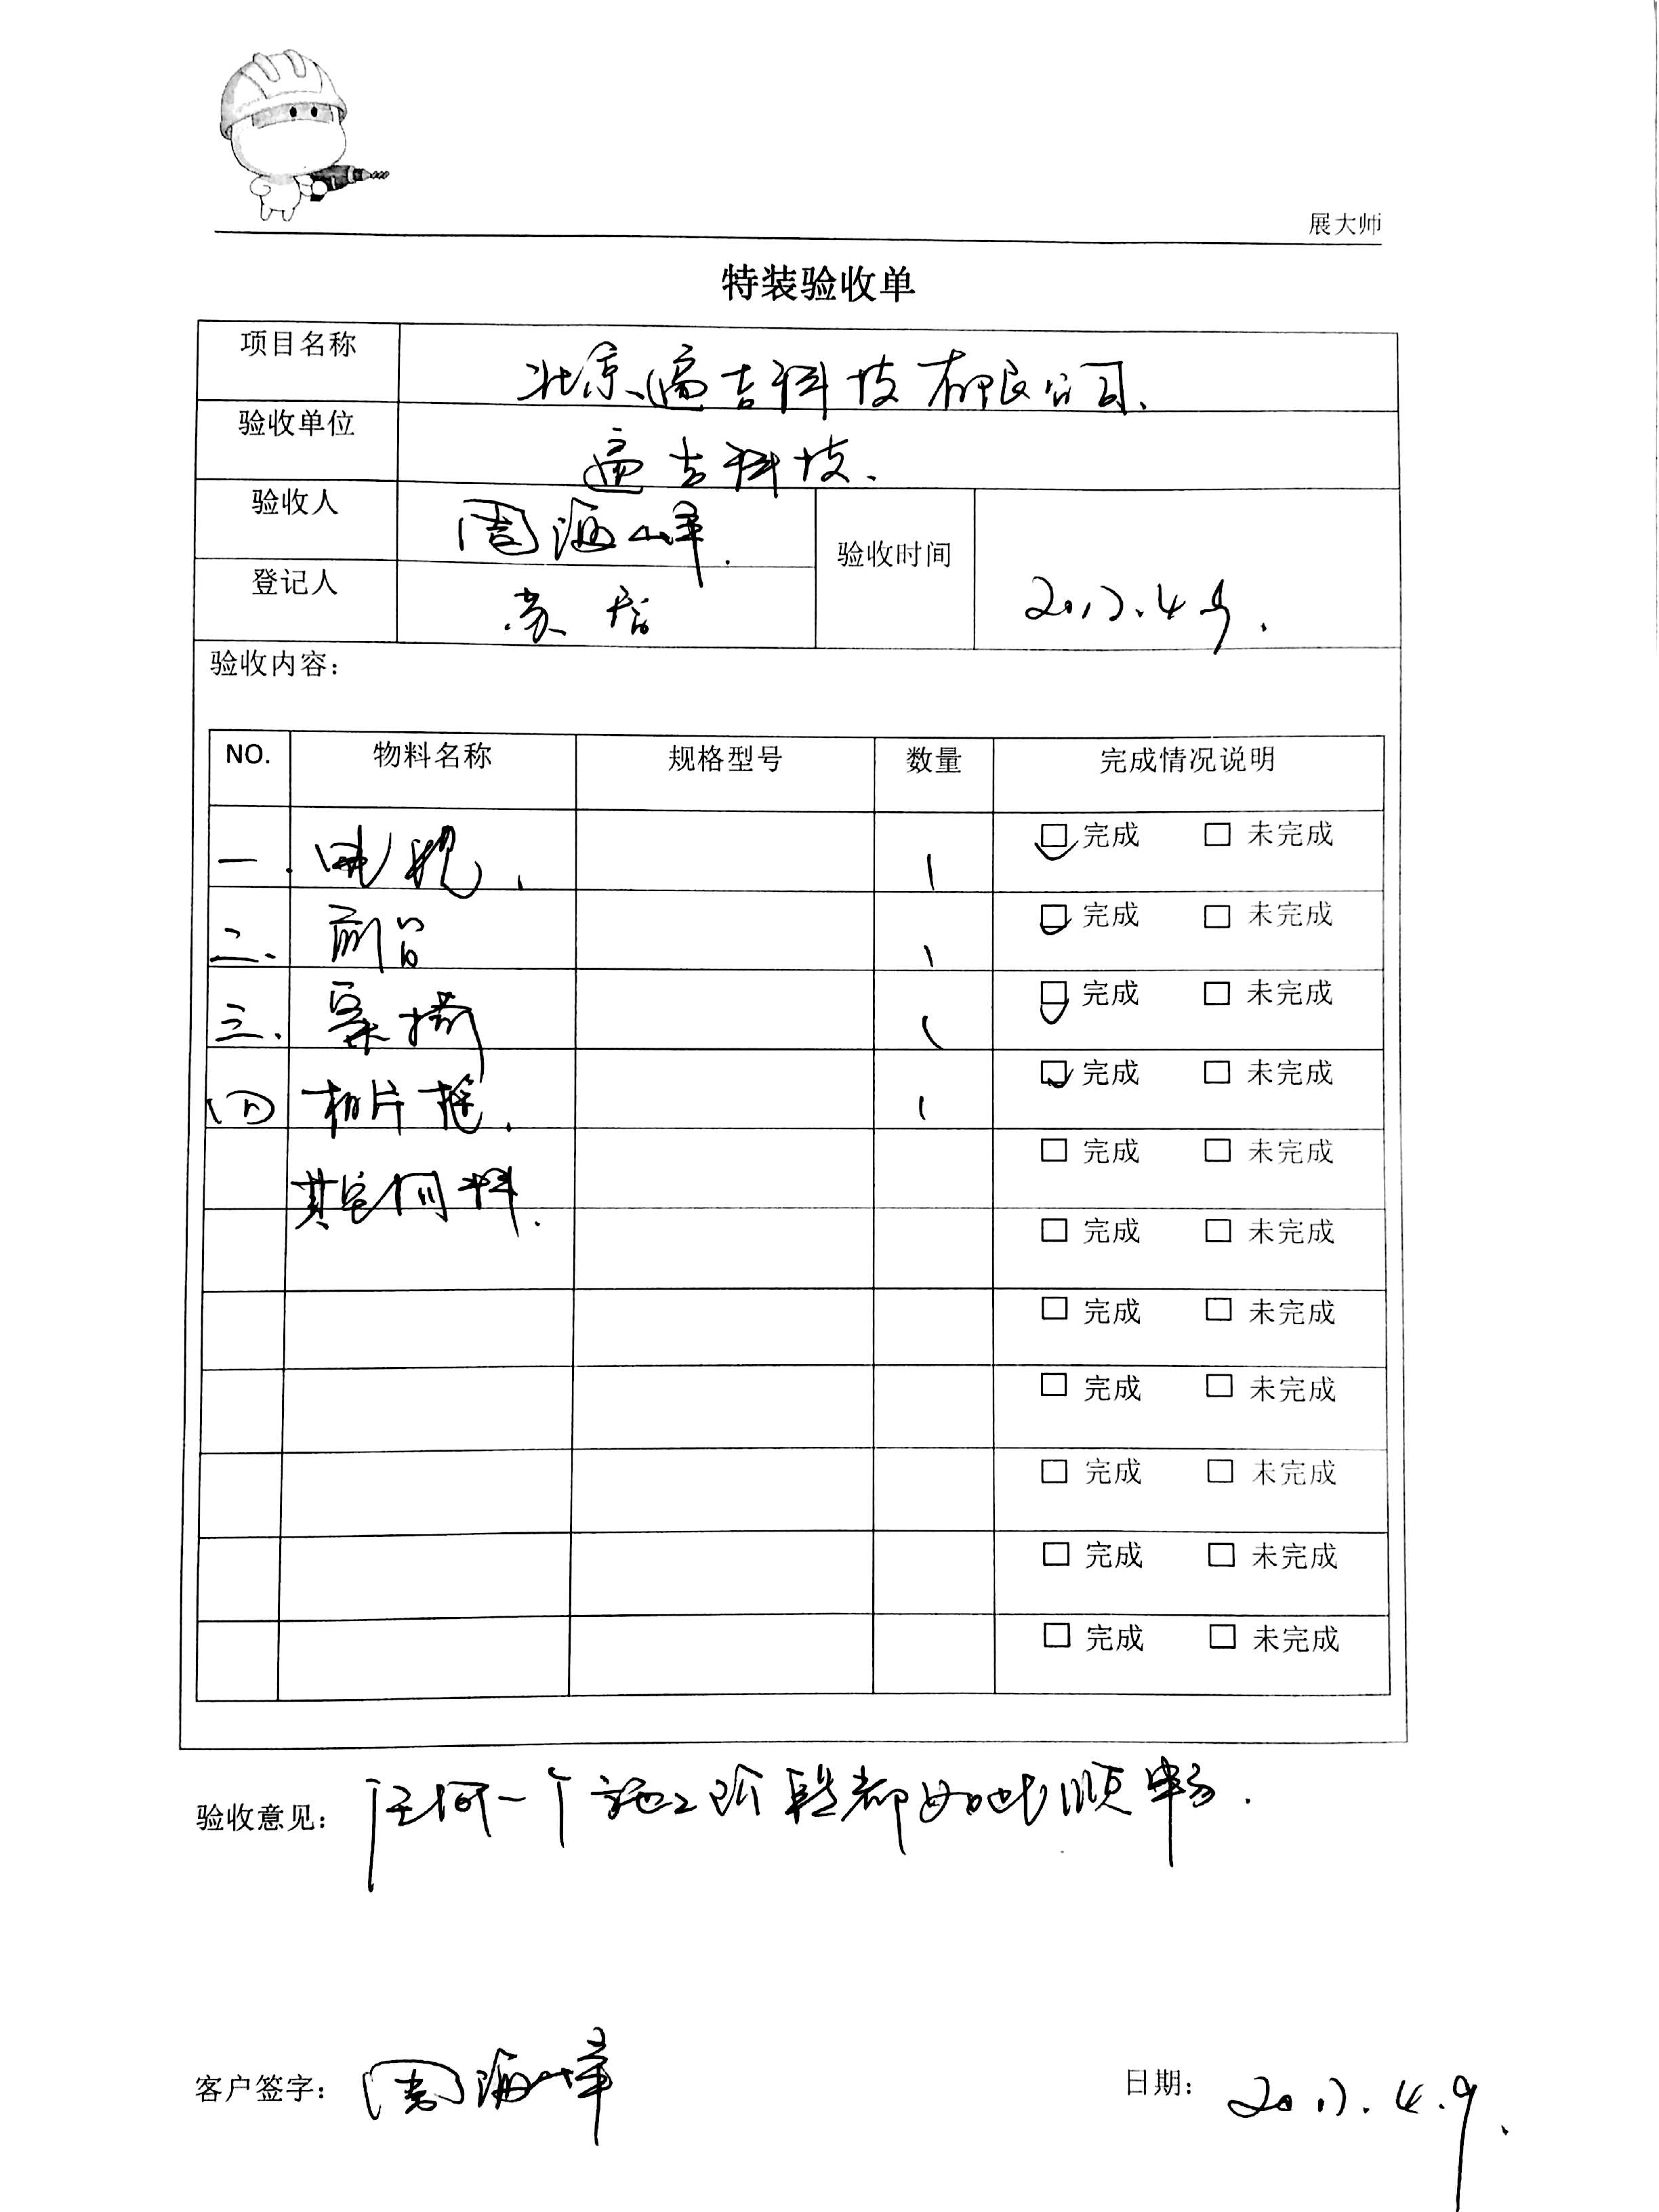 展大师
特装验收单
项目名称 北京遍吉科技有限公司.
验收单位 遍吉科技.
验收人 周海峰.
验收时间 2017.4.9.
登记人 苏
验收内容：
NO. 物料名称 规格型号 数量 完成情况说明
一. 电视. 1 完成 未完成
二. 前台 1 完成 未完成
三. 桌椅 1 完成 未完成
四 相片框. 1 完成 未完成
其它物料. 完成 未完成
完成 未完成
完成 未完成
完成 未完成
完成 未完成
完成 未完成
完成 未完成
验收意见： 任何一个施工阶段都如此顺畅.
客户签字： 周海峰
日期： 2017.4.9.